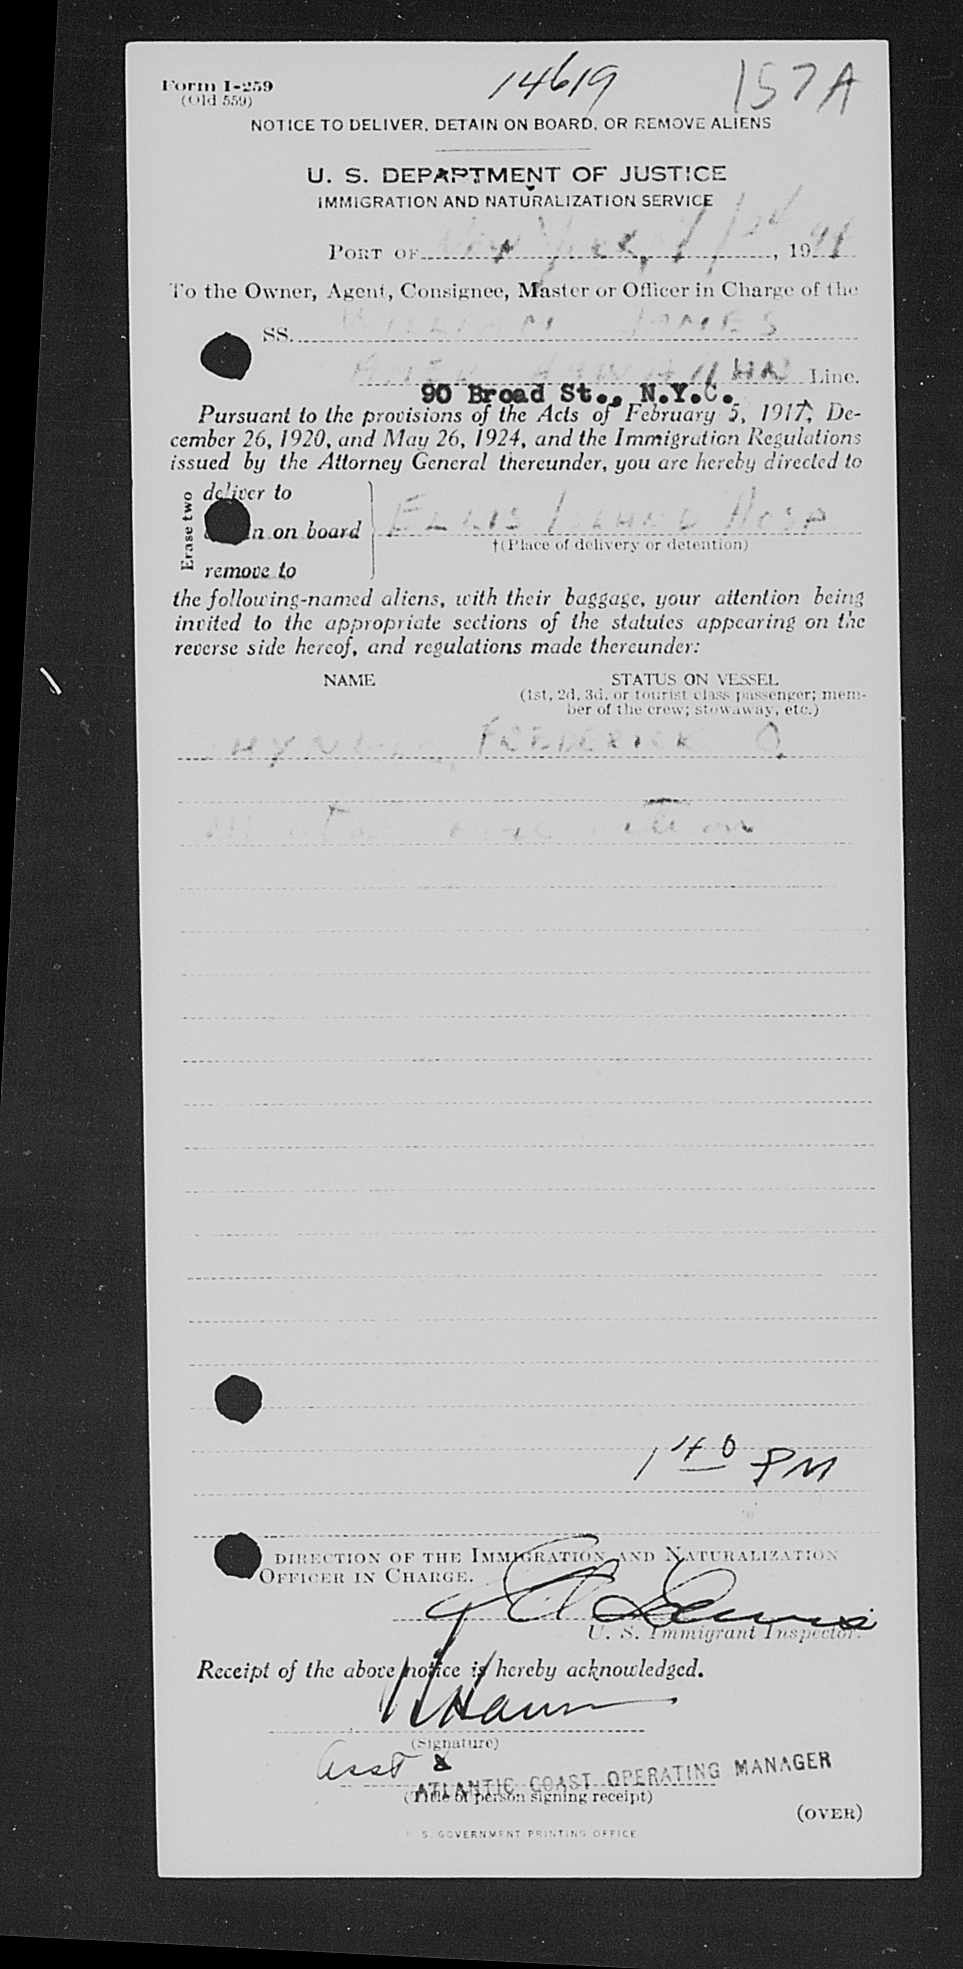 Form I-259
(Old 559)
14619
157A
NOTICE TO DELIVER, DETAIN ON BOARD, OR REMOVE ALIENS
U. S. DEPARTMENT OF JUSTICE
IMMIGRATION AND NATURALIZATION SERVICE
PORT OF New York, 19
To the Owner, Agent, Consignee, Master or Officer in Charge of the
SS. WILLIAM JAMES
AMER HAWAIIAN Line.
90 Broad St., N.Y.C.
Pursuant to the provisions of the Acts of February 5, 1917, De-
cember 26, 1920, and May 26, 1924, and the Immigration Regulations
issued by the Attorney General thereunder, you are hereby directed to
Erase two
deliver to
n on board
remove to
ELLIS ISLAND HOSP
†(Place of delivery or detention)
the following-named aliens, with their baggage, your attention being
invited to the appropriate sections of the statutes appearing on the
reverse side hereof, and regulations made thereunder:
NAME
STATUS ON VESSEL
(1st, 2d, 3d, or tourist class passenger; mem-
ber of the crew; stowaway, etc.)
FREDERICK O
1 40 PM
DIRECTION OF THE IMMIGRATION AND NATURALIZATION
OFFICER IN CHARGE.
U. S. Immigrant Inspector.
Receipt of the above notice is hereby acknowledged.
(Signature)
Asst
ATLANTIC COAST OPERATING MANAGER
(Title of person signing receipt)
(OVER)
U. S. GOVERNMENT PRINTING OFFICE